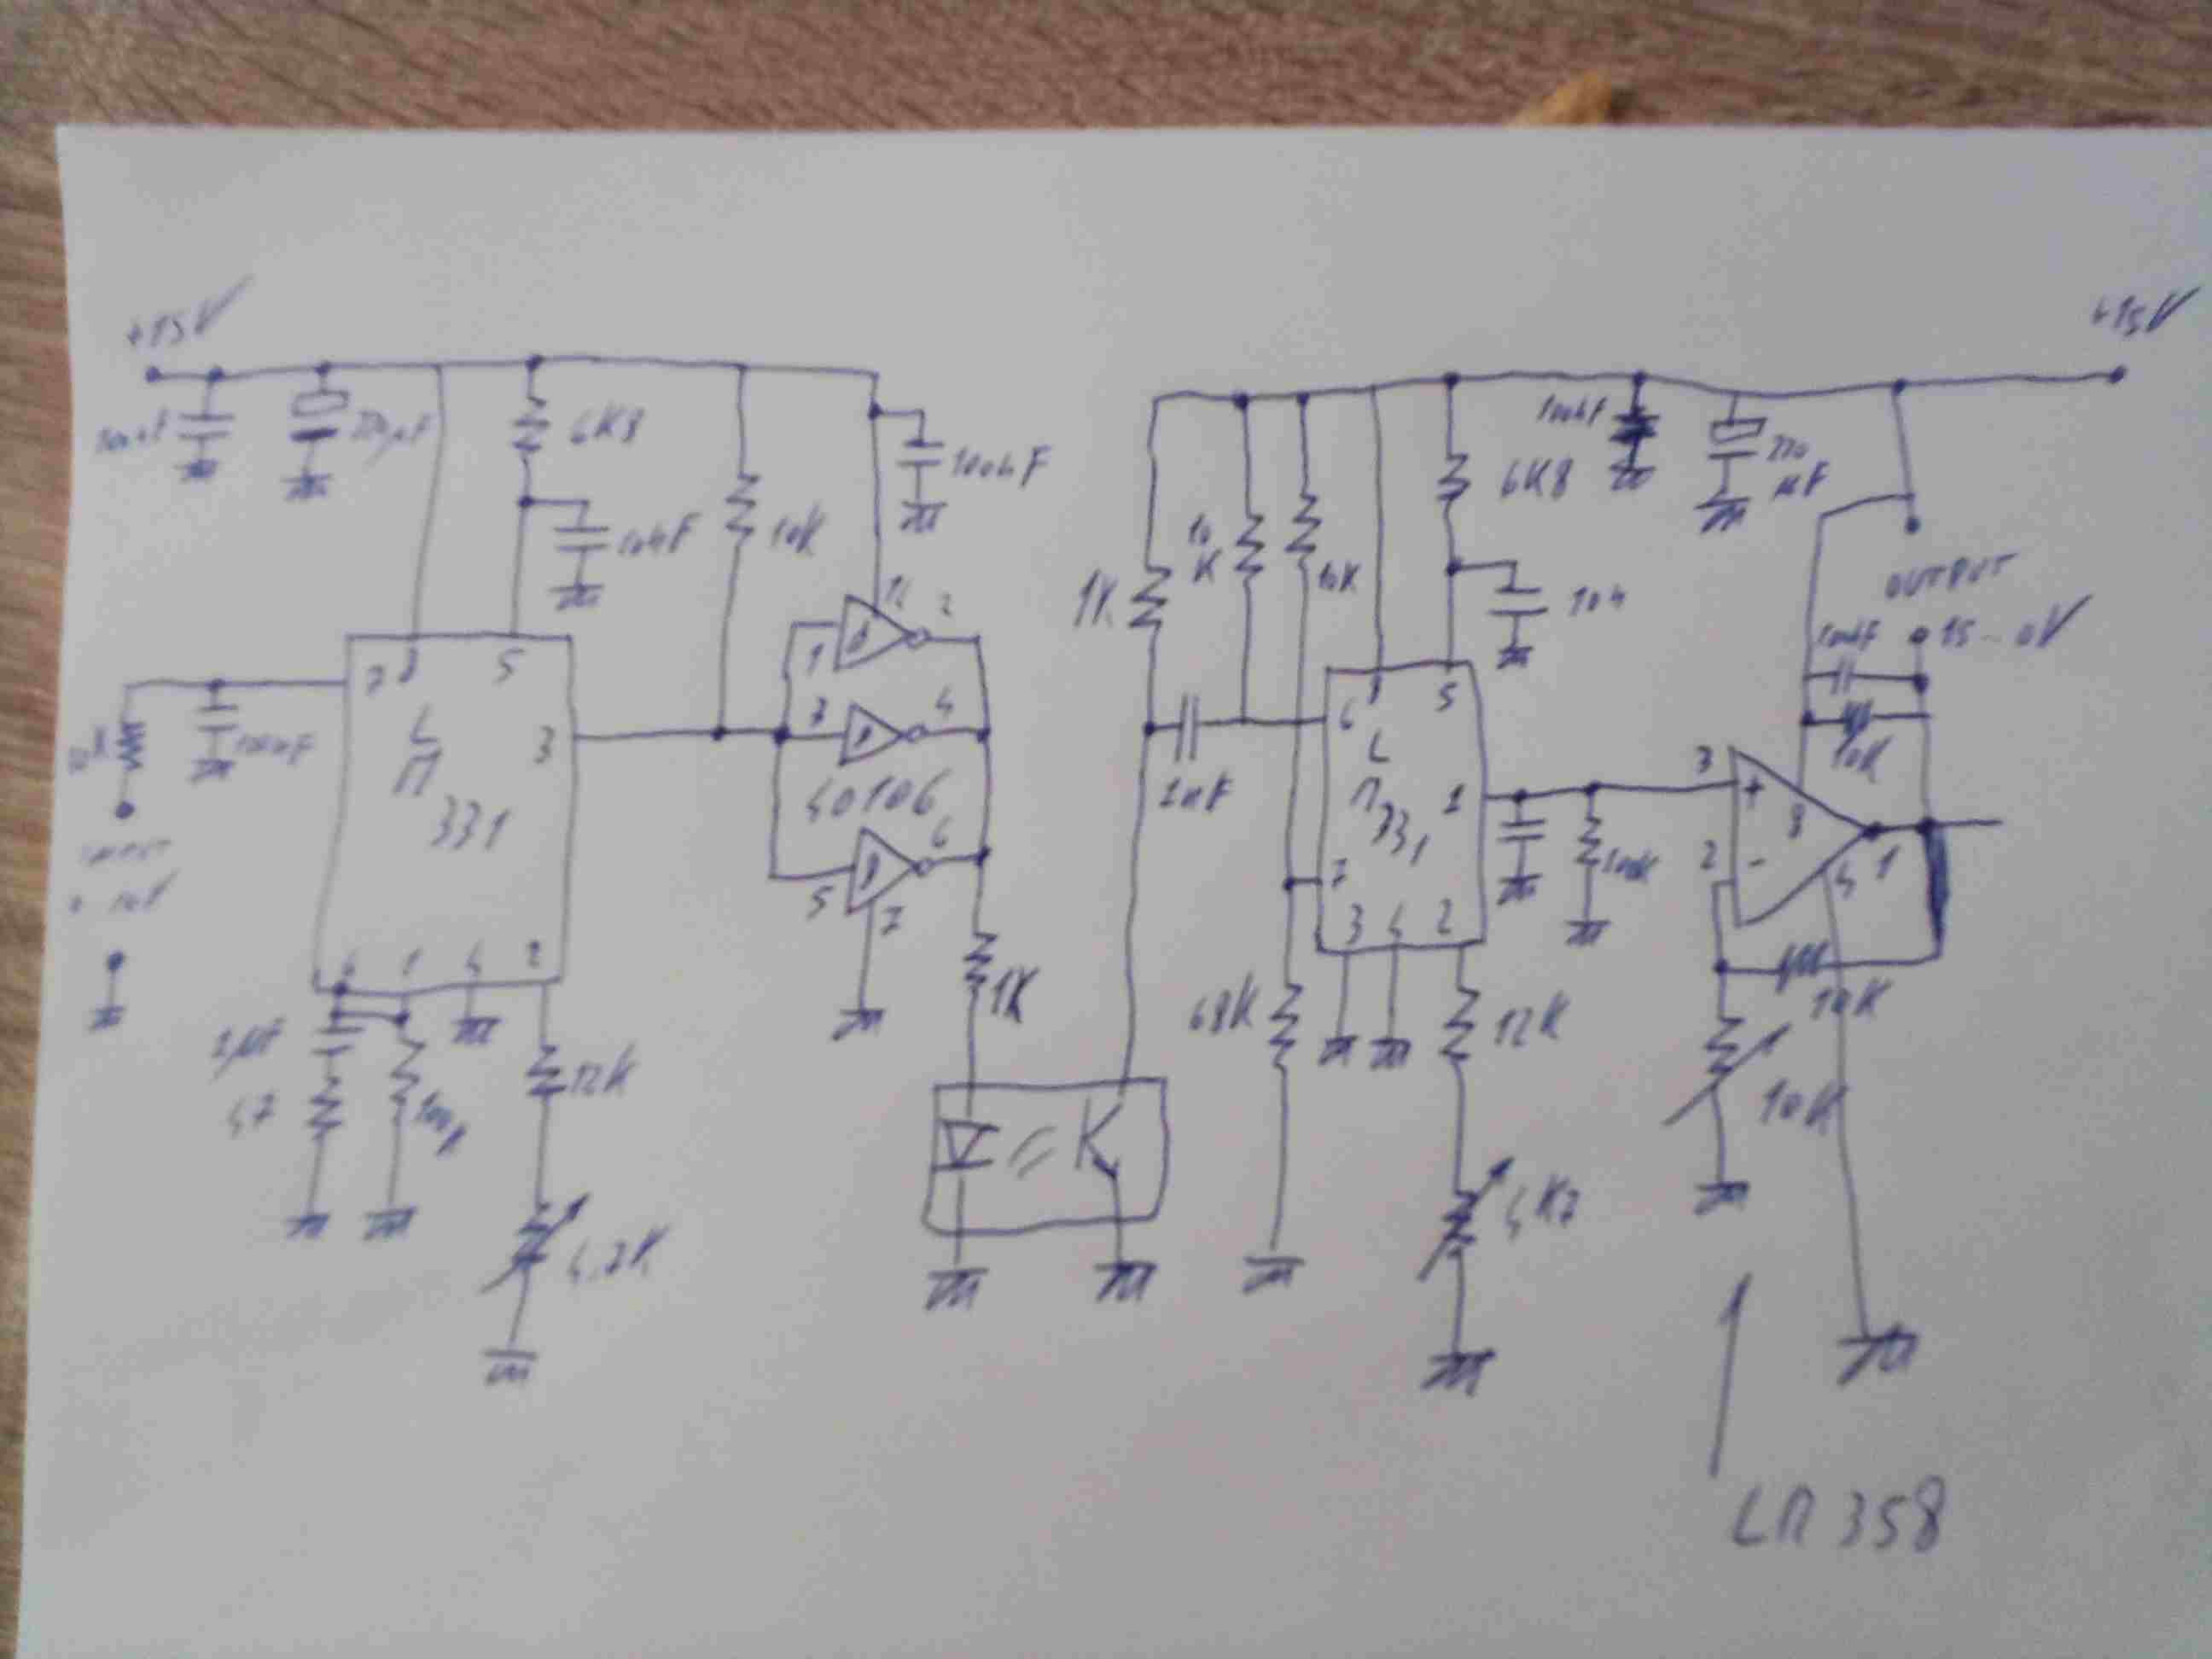 +15V
220µF
6K8
10nF
10K
100nF
7
8
5
L
M
331
3
6
1
4
2
47
100K
12K
4.7K
1
14
2
3
4
40106
5
6
7
1K
+15V
1K
10
K
10K
6K8
100nF
220
µF
10n
6
8
5
L
M
331
1
7
3
4
2
1nF
68K
12K
4K7
100K
OUTPUT
15-0V
100nF
10K
3
+
8
2
-
4
1
10K
10K
LM 358